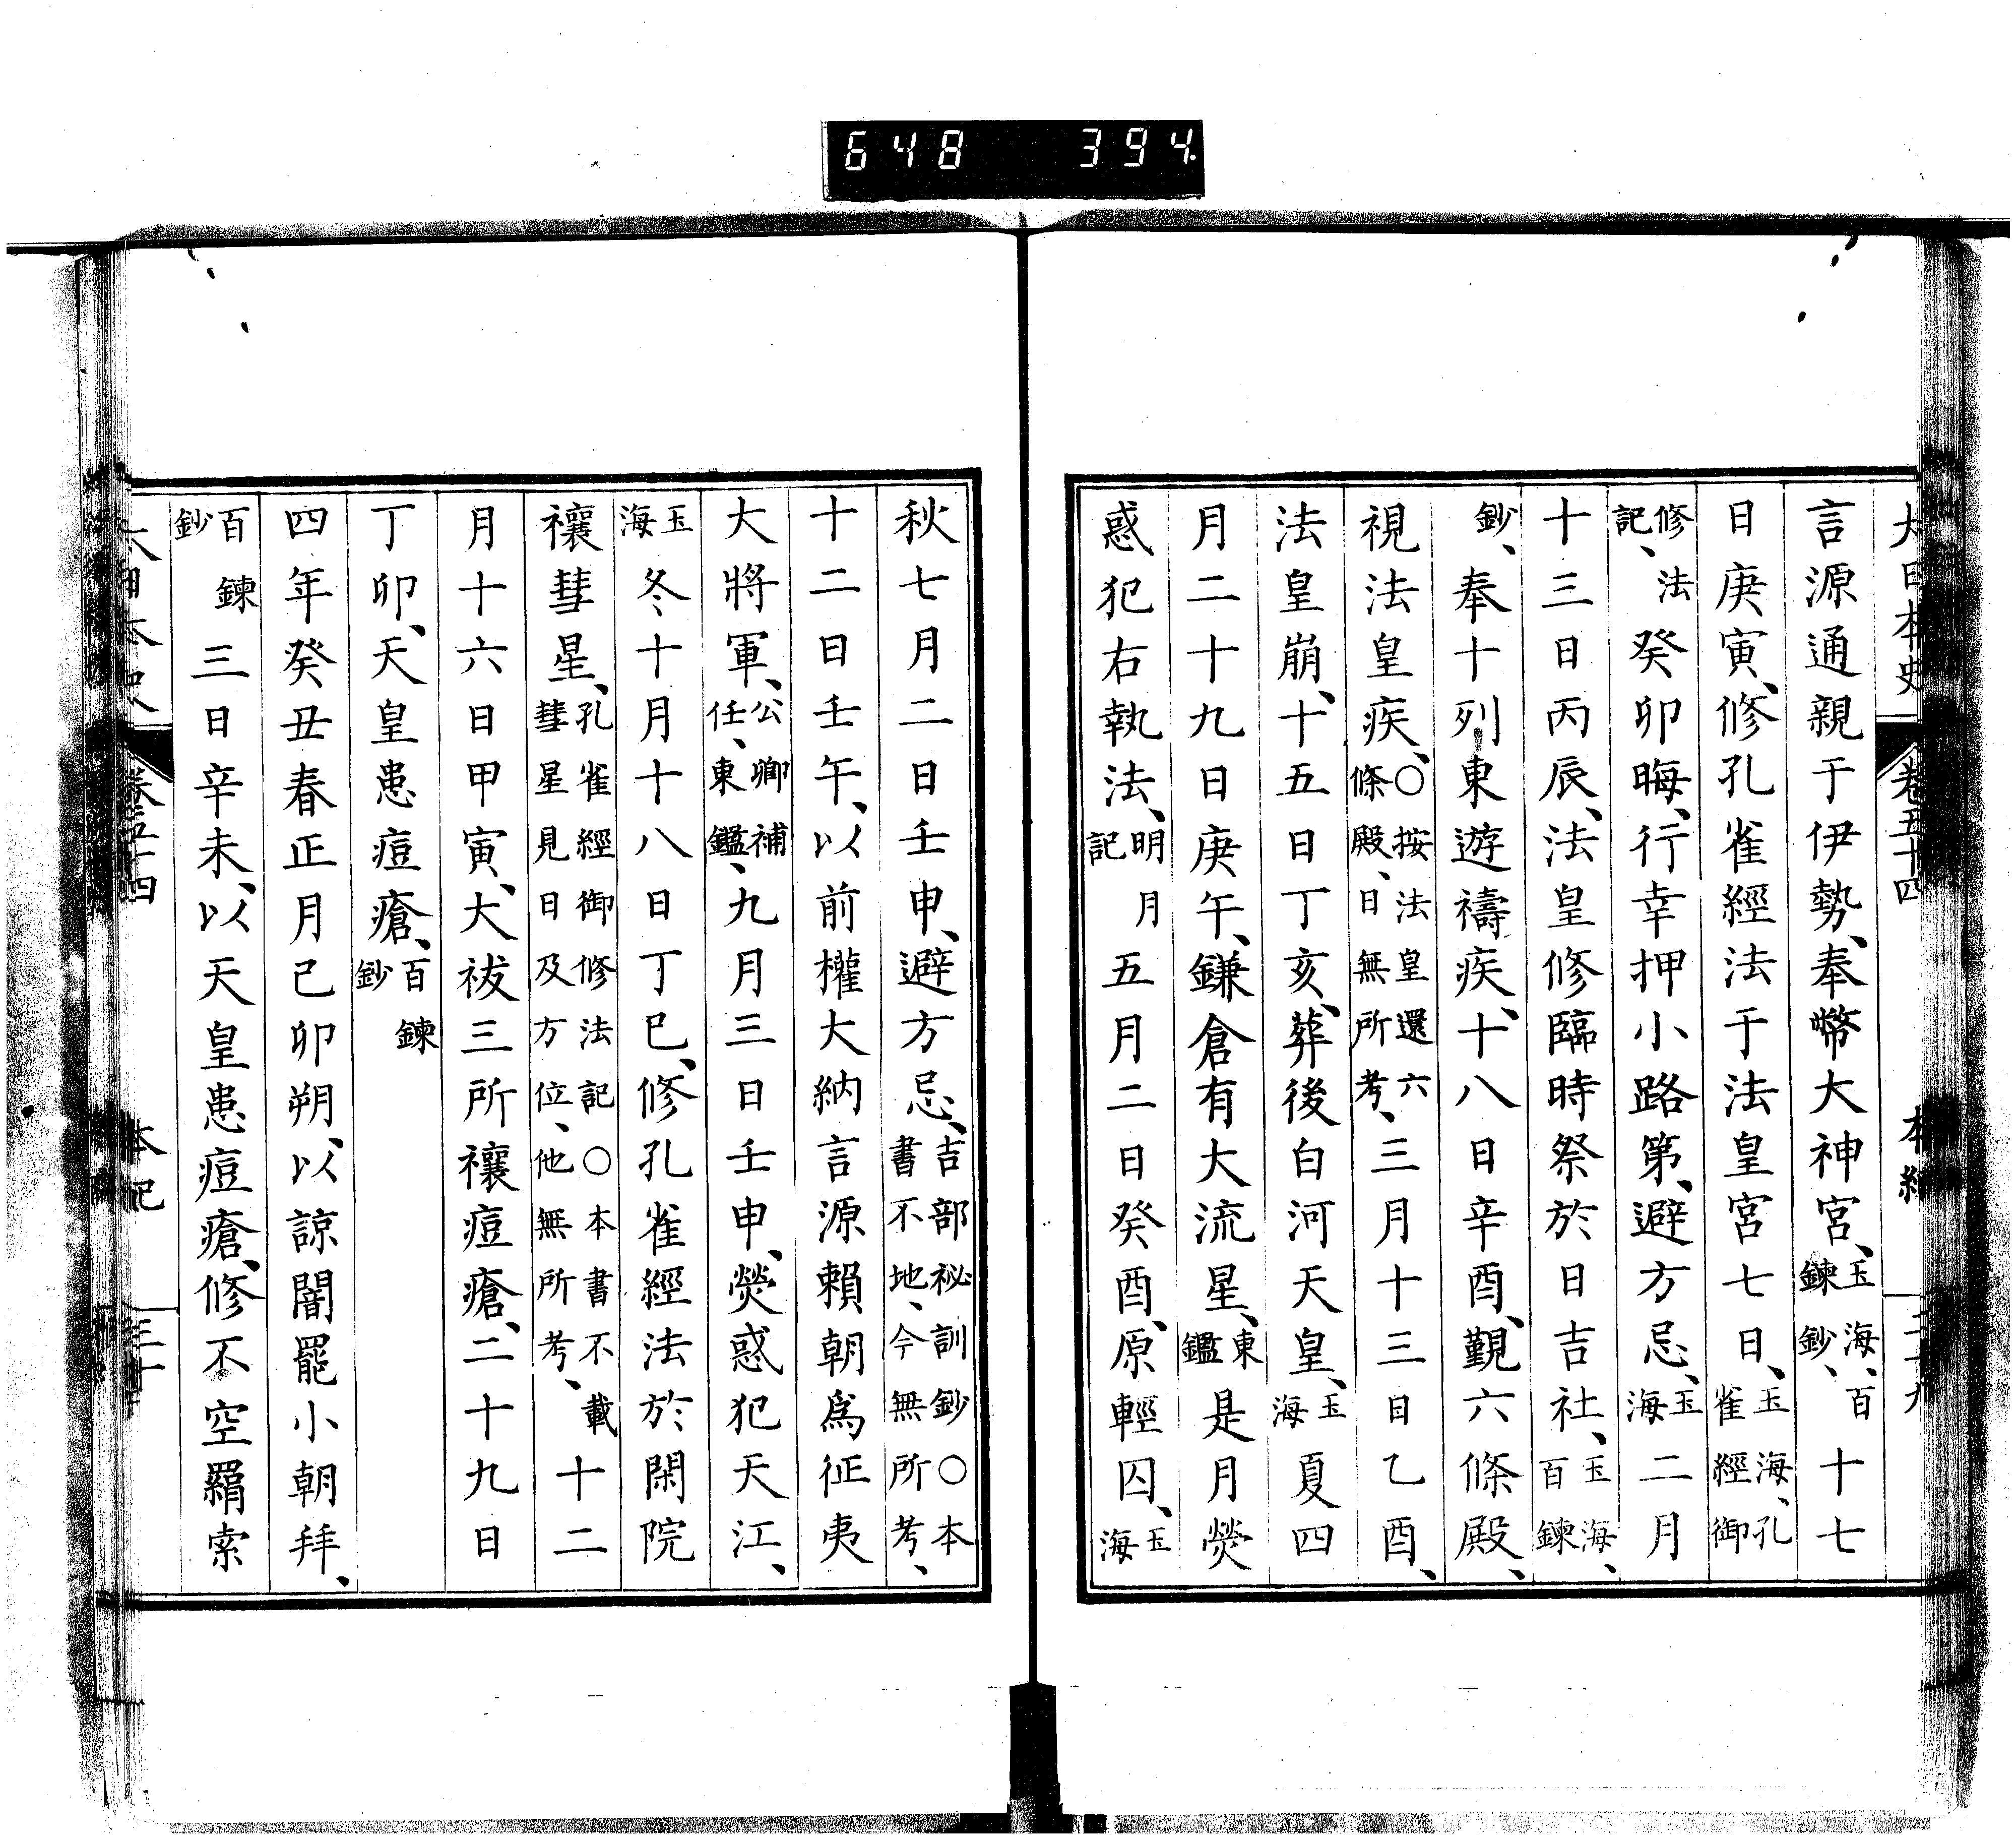 648 394
大日本史 卷五十四 本紀 二十九
言源通親于伊勢、奉幣大神宮、玉海、百鍊鈔、十七
日庚寅、修孔雀經法于法皇宮七日、玉海、孔雀經御
修法記、癸卯晦、行幸押小路第、避方忌、玉海二月
十三日丙辰、法皇修臨時祭於日吉社、玉海、百鍊
鈔、奉十列東遊禱疾、十八日辛酉、覲六條殿、
視法皇疾、○按法皇還六條殿、日無所考、三月十三日乙酉、
法皇崩、十五日丁亥、葬後白河天皇、玉海夏四
月二十九日庚午、鎌倉有大流星、東鑑是月熒
惑犯右執法、明月記五月二日癸酉、原輕囚、玉海
秋七月二日壬申、避方忌、吉部祕訓鈔○本書不地、今無所考、
十二日壬午、以前權大納言源賴朝爲征夷
大將軍、公卿補任、東鑑、九月三日壬申、熒惑犯天江、
玉海冬、十月十八日丁巳、修孔雀經法於閑院
禳彗星、孔雀經御修法記○本書不載彗星見日及方位、他無所考、十二
月十六日甲寅、大祓三所禳痘瘡、二十九日
丁卯、天皇患痘瘡、百鍊鈔
四年癸丑春正月己卯朔、以諒闇罷小朝拜、
百鍊鈔三日辛未、以天皇患痘瘡、修不空羂索
大日本史 卷五十四 本紀 三十